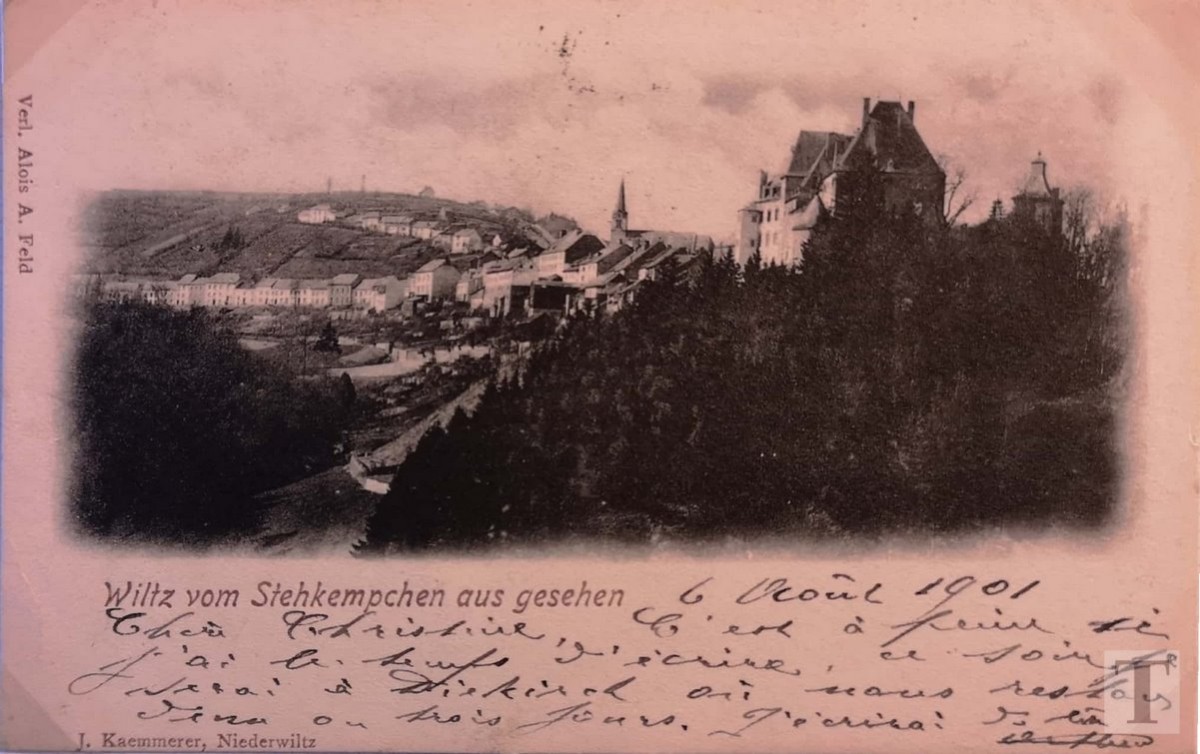 Verl. Alois A. Feld
Wiltz vom Stehkempchen aus gesehen
6 Août 1901
Chère Christine, C'est à peine si
j'ai le temps d'écrire, ce soir je
serai à Diekirch où nous restons
deux ou trois jours. J'écrirai de
J. Kaemmerer, Niederwiltz
T